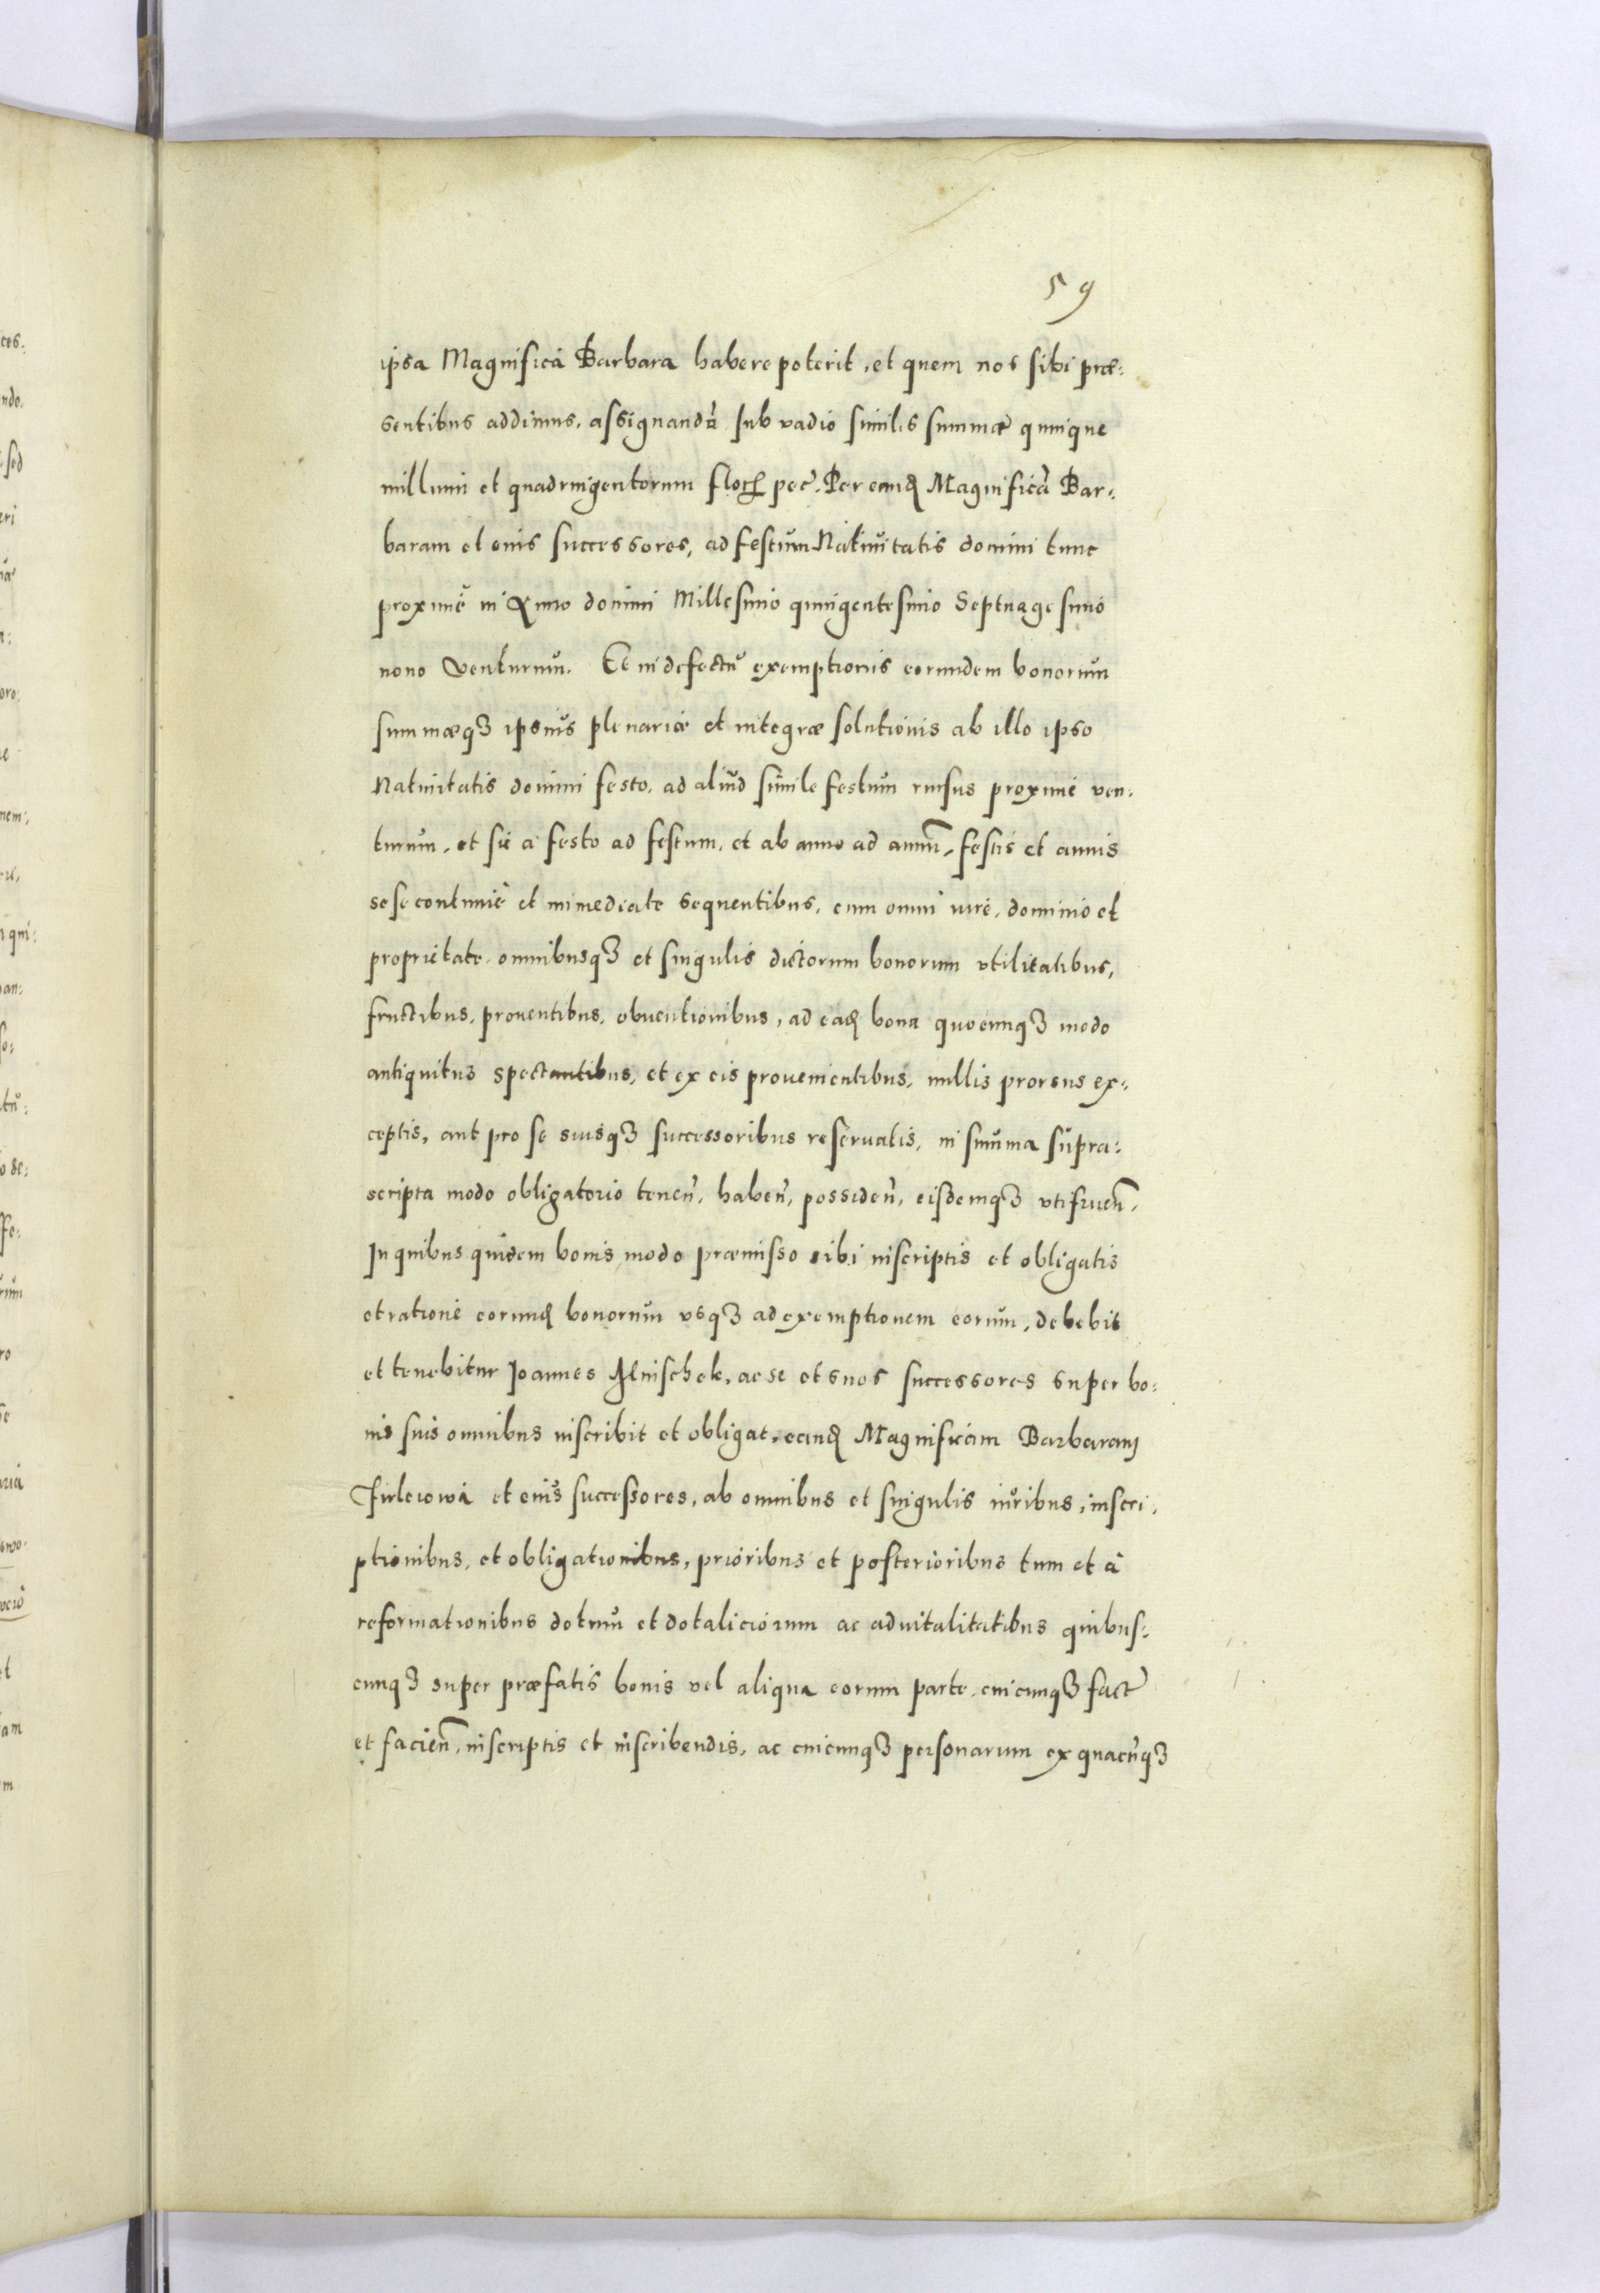 59
ipsa Magnifica Barbara habere poterit, et quem nos sibi præ-
sentibus addimus, assignandꝝ sub vadio similis summæ quinque
millium et quadringentorum floꝝ pec̃. Per eandꝫ Magnificã Bar-
baram et eius successores, ad festum Natiuitatis domini tunc
proximè in Anno domini Millesimo quingentesimo Septuagesimo
nono Venturum. Et in defectu exemptionis eorundem bonorum
summæqꝫ ipsius plenariæ et integræ solutionis ab illo ipso
Natiuitatis domini festo, ad aliud simile festum rursus proximè ven-
turum, et sic a festo ad festum, et ab anno ad annũ, festis et annis
sese continuè et immediate sequentibus, cum omni iure, dominio et
proprietate omnibusqꝫ et singulis dictorum bonorum vtilitatibus,
fructibus, prouentibus, obuentionibus, ad eadꝫ bona quocunqꝫ modo
antiquitus spectantibus, et ex eis prouenientibus, nullis prorsus ex-
ceptis, aut pro se suisqꝫ successoribus reseruatis, in summa supra-
scripta modo obligatorio tenen̄, haben̄, possiden̄, eisdemqꝫ vtifruen̄,
In quibus quidem bonis modo præmisso sibi inscriptis et obligatis
et ratione eorundꝫ bonorum vsqꝫ ad exemptionem eorum, debebit
et tenebitur Ioannes, ac se et suos successores super bo-
nis suis omnibus inscribit et obligat, eandꝫ Magnificam Barbaram
et eius successores, ab omnibus et singulis iuribus, inscri-
ptionibus, et obligationibus, prioribus et posterioribus tum et à
reformationibus dotium et dotaliciorum ac aduitalitatibus quibus-
cunqꝫ super præfatis bonis vel aliqua eorum parte cuicunqꝫ fact̃
et facien̄, inscriptis et inscribendis, ac cuicunqꝫ personarum ex quacũqꝫ